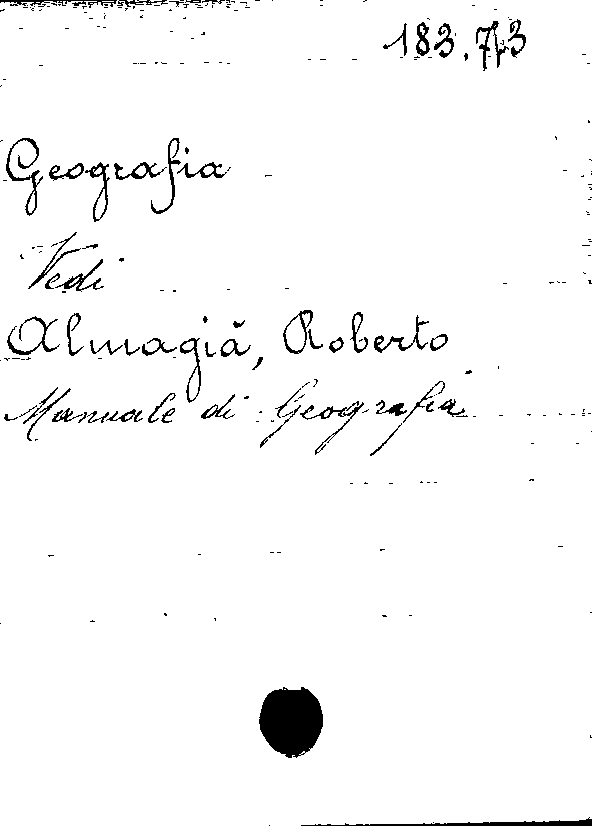 183.773
Geografia
Vedi
Almagià, Roberto
Manuale di Geografia